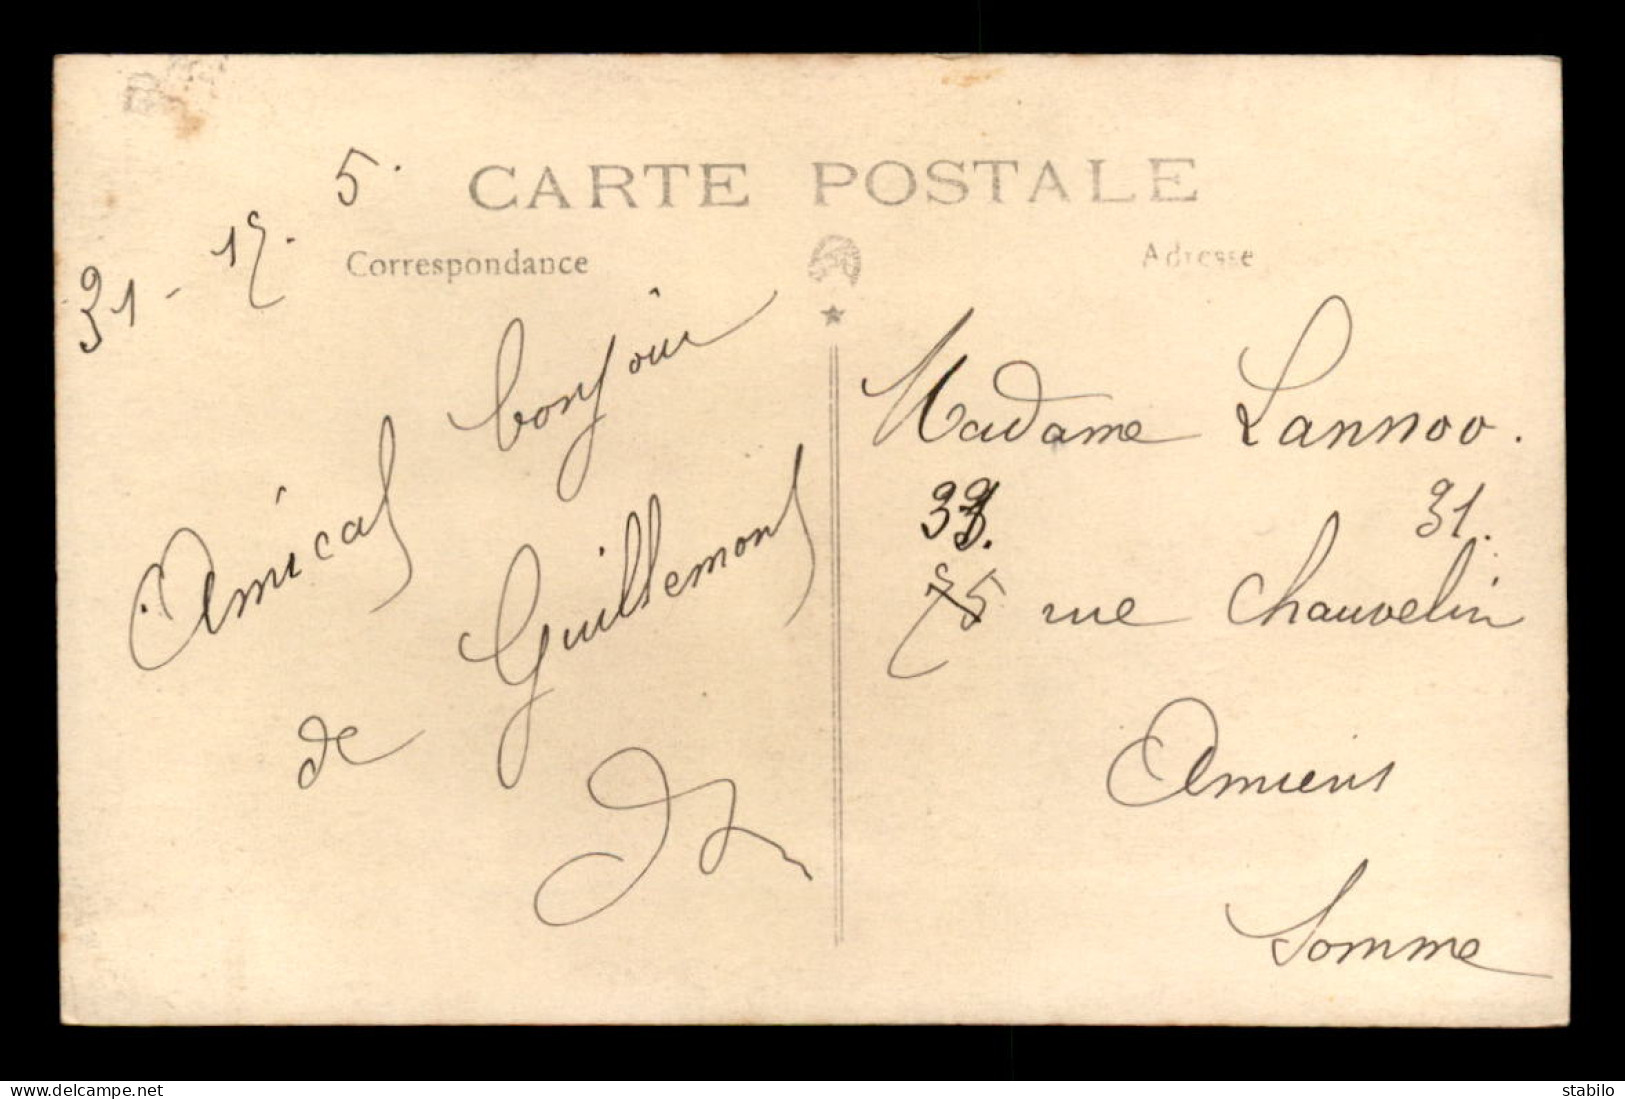 CARTE POSTALE
Correspondance
Adresse
31 - 12. 5.
Amical bonjour
de Guillemont
Madame Lannoo.
33. 31.
75 rue Chauvelin
Amiens
Somme
delcampe.net
stabilo